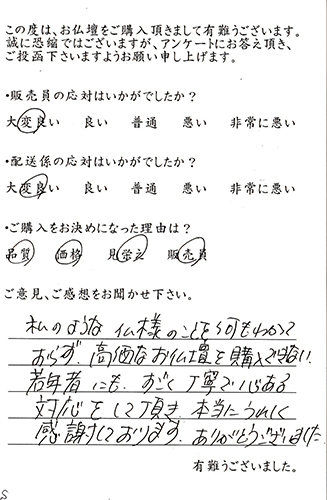 この度は、お仏壇をご購入頂きまして有難うございます。
誠に恐縮ではございますが、アンケートにお答え頂き、
ご投函下さいますようお願い申し上げます。
・販売員の応対はいかがでしたか？
大変良い 良い 普通 悪い 非常に悪い
・配送係の応対はいかがでしたか？
大変良い 良い 普通 悪い 非常に悪い
・ご購入をお決めになった理由は？
品質 価格 見栄え 販売員
ご意見、ご感想をお聞かせ下さい。
私のような仏様のことを何もわかって
おらず、高価なお仏壇を購入できない
若年者にも、すごく丁寧で心ある
対応をして頂き、本当にうれしく
感謝しております。ありがとうございました
有難うございました。
S